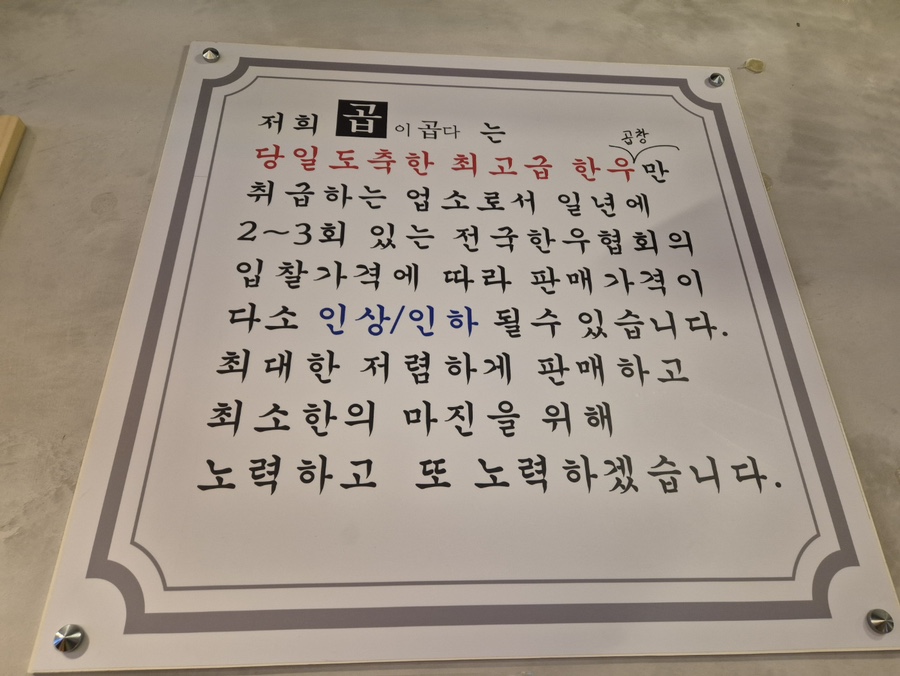 저희 곱 이 곱다 는
곱창
당일도축한 최고급 한우만
취급하는 업소로서 일년에
2~3회 있는 전국한우협회의
입찰가격에 따라 판매가격이
다소 인상/인하 될수 있습니다.
최대한 저렴하게 판매하고
최소한의 마진을 위해
노력하고 또 노력하겠습니다.